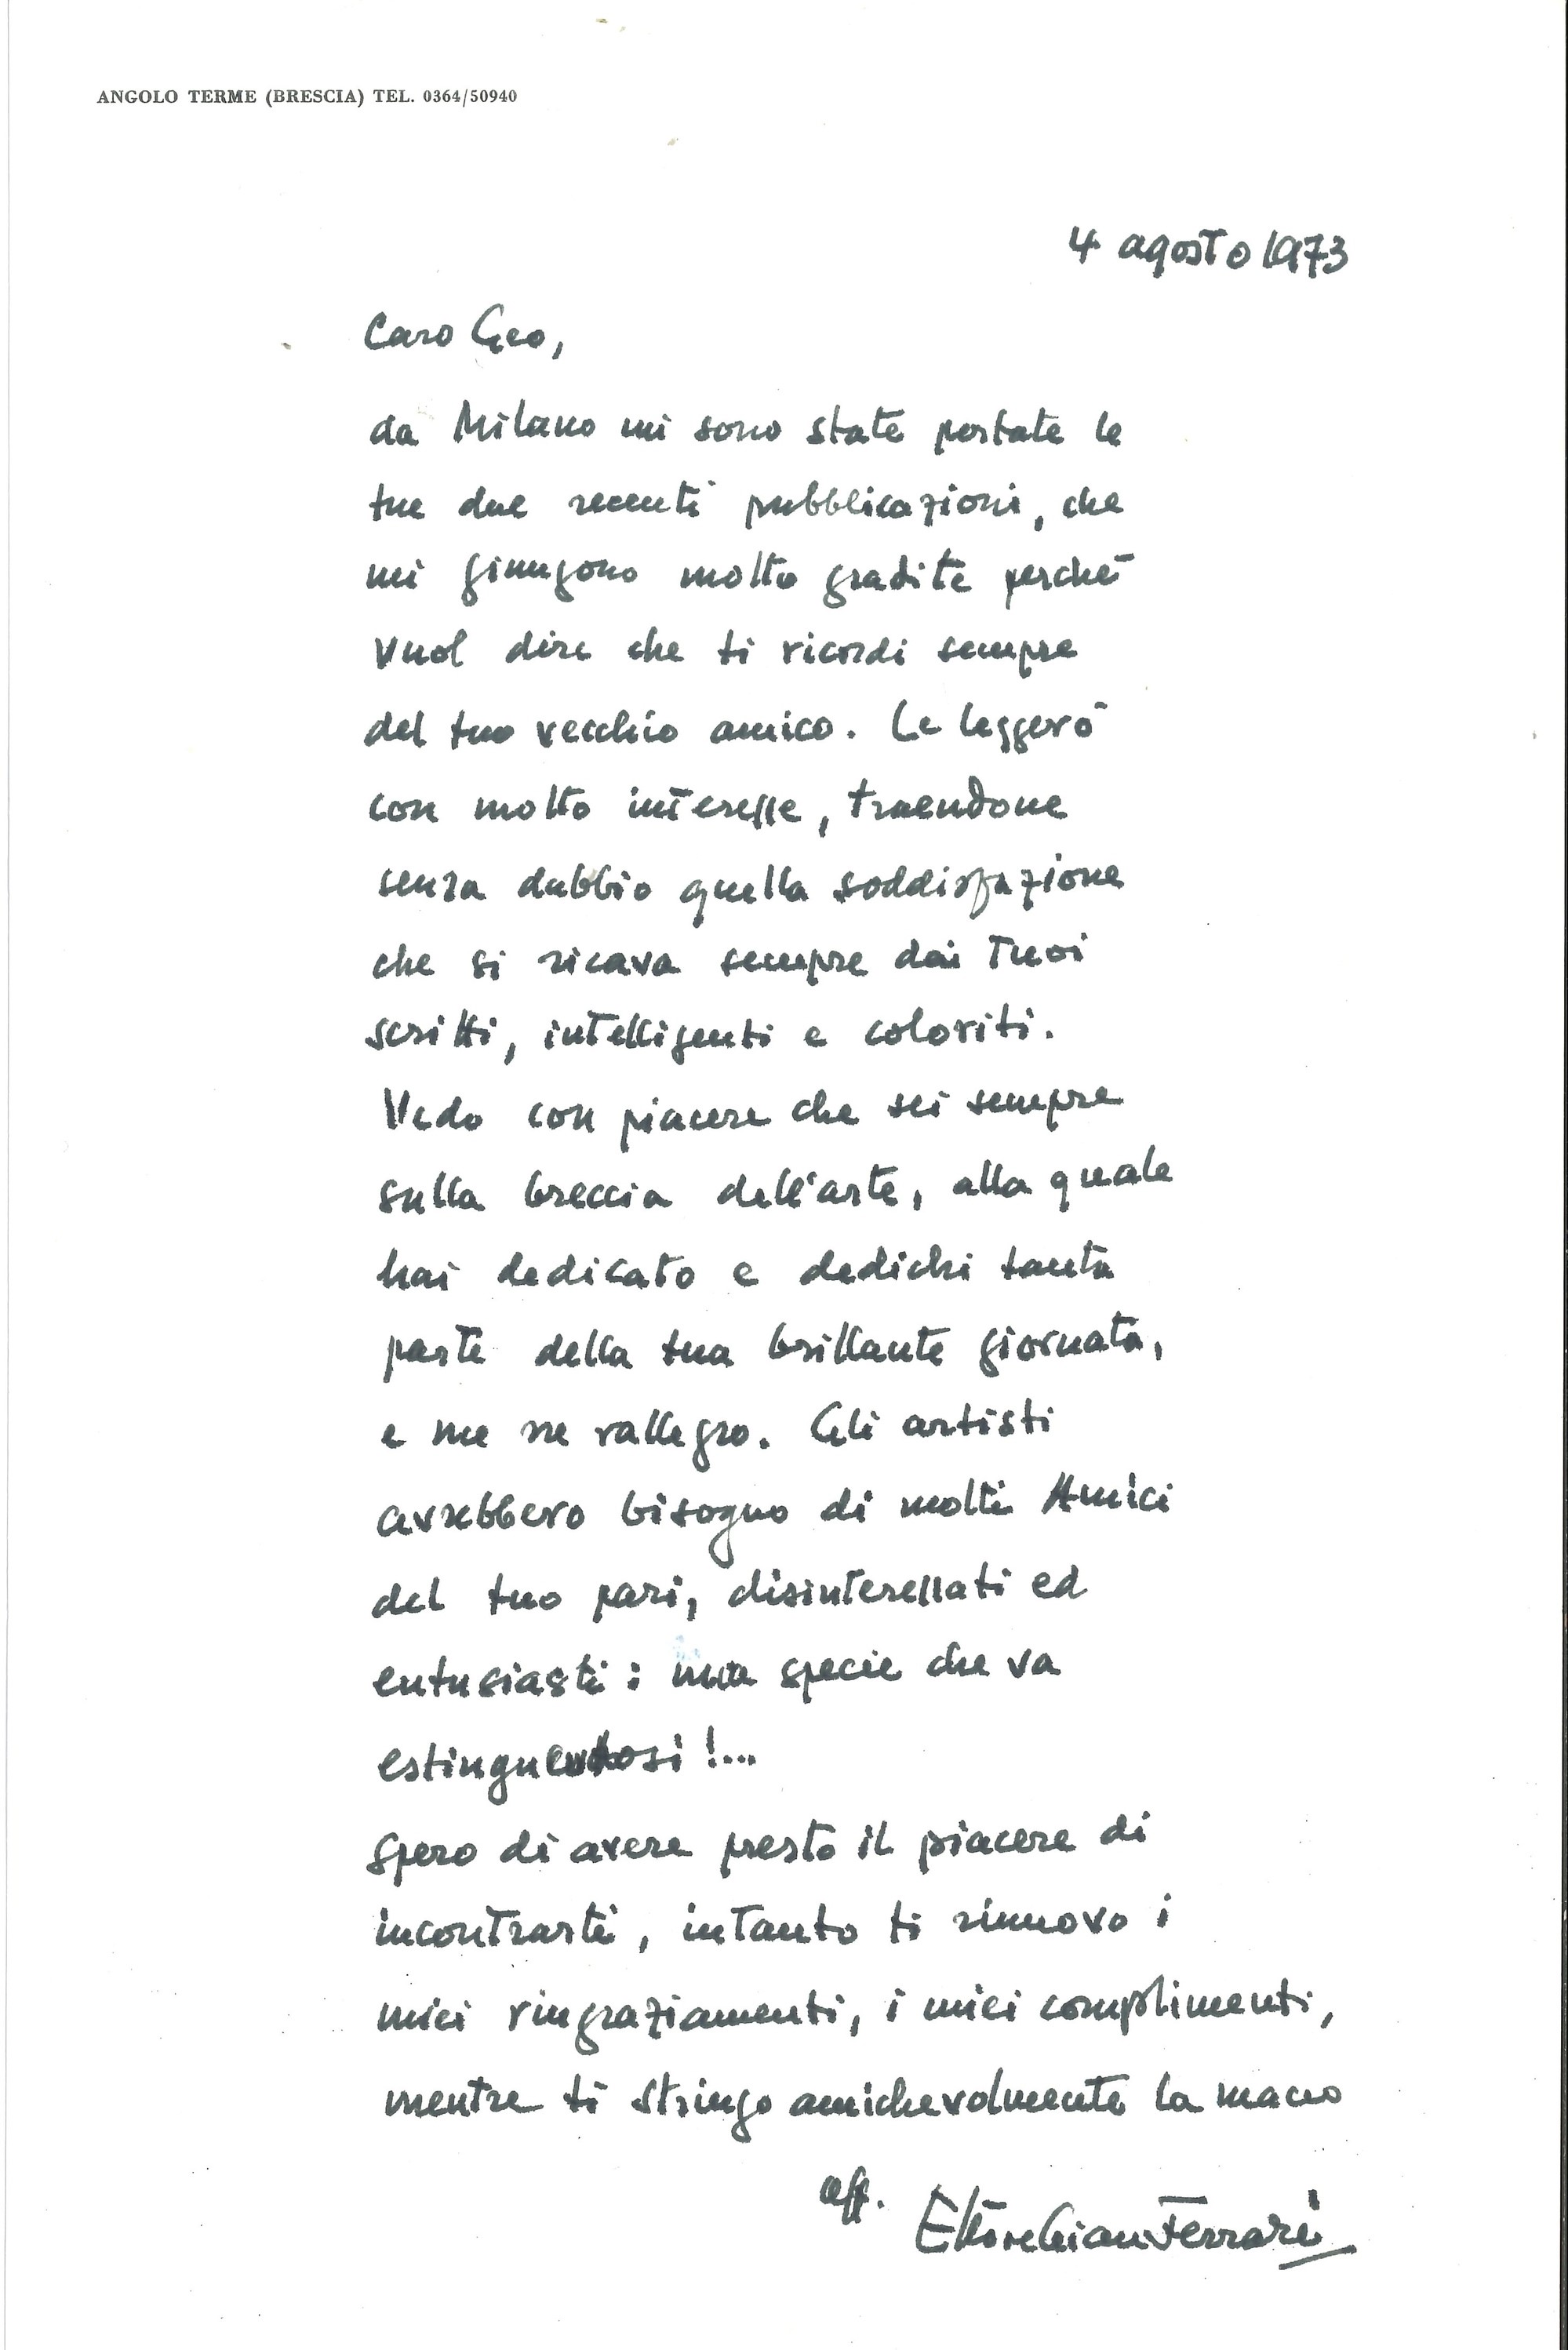 ANGOLO TERME (BRESCIA) TEL. 0364/50940
4 agosto 1973
Caro Geo,
da Milano mi sono state portate le
tue due recenti pubblicazioni, che
mi giungono molto gradite perché
vuol dire che ti ricordi sempre
del tuo vecchio amico. Le leggerò
con molto interesse, traendone
senza dubbio quella soddisfazione
che si ricava sempre dai Tuoi
scritti, intelligenti e coloriti.
Vedo con piacere che sei sempre
sulla breccia dell'arte, alla quale
hai dedicato e dedichi tanta
parte della tua brillante giornata,
e me ne rallegro. Gli artisti
avrebbero bisogno di molti Amici
del tuo pari, disinteressati ed
entusiasti: una specie che va
estinguendosi!...
Spero di avere presto il piacere di
incontrarti, intanto ti rinnovo i
miei ringraziamenti, i miei complimenti,
mentre ti stringo amichevolmente la mano
aff. Ettore Gian Ferrari